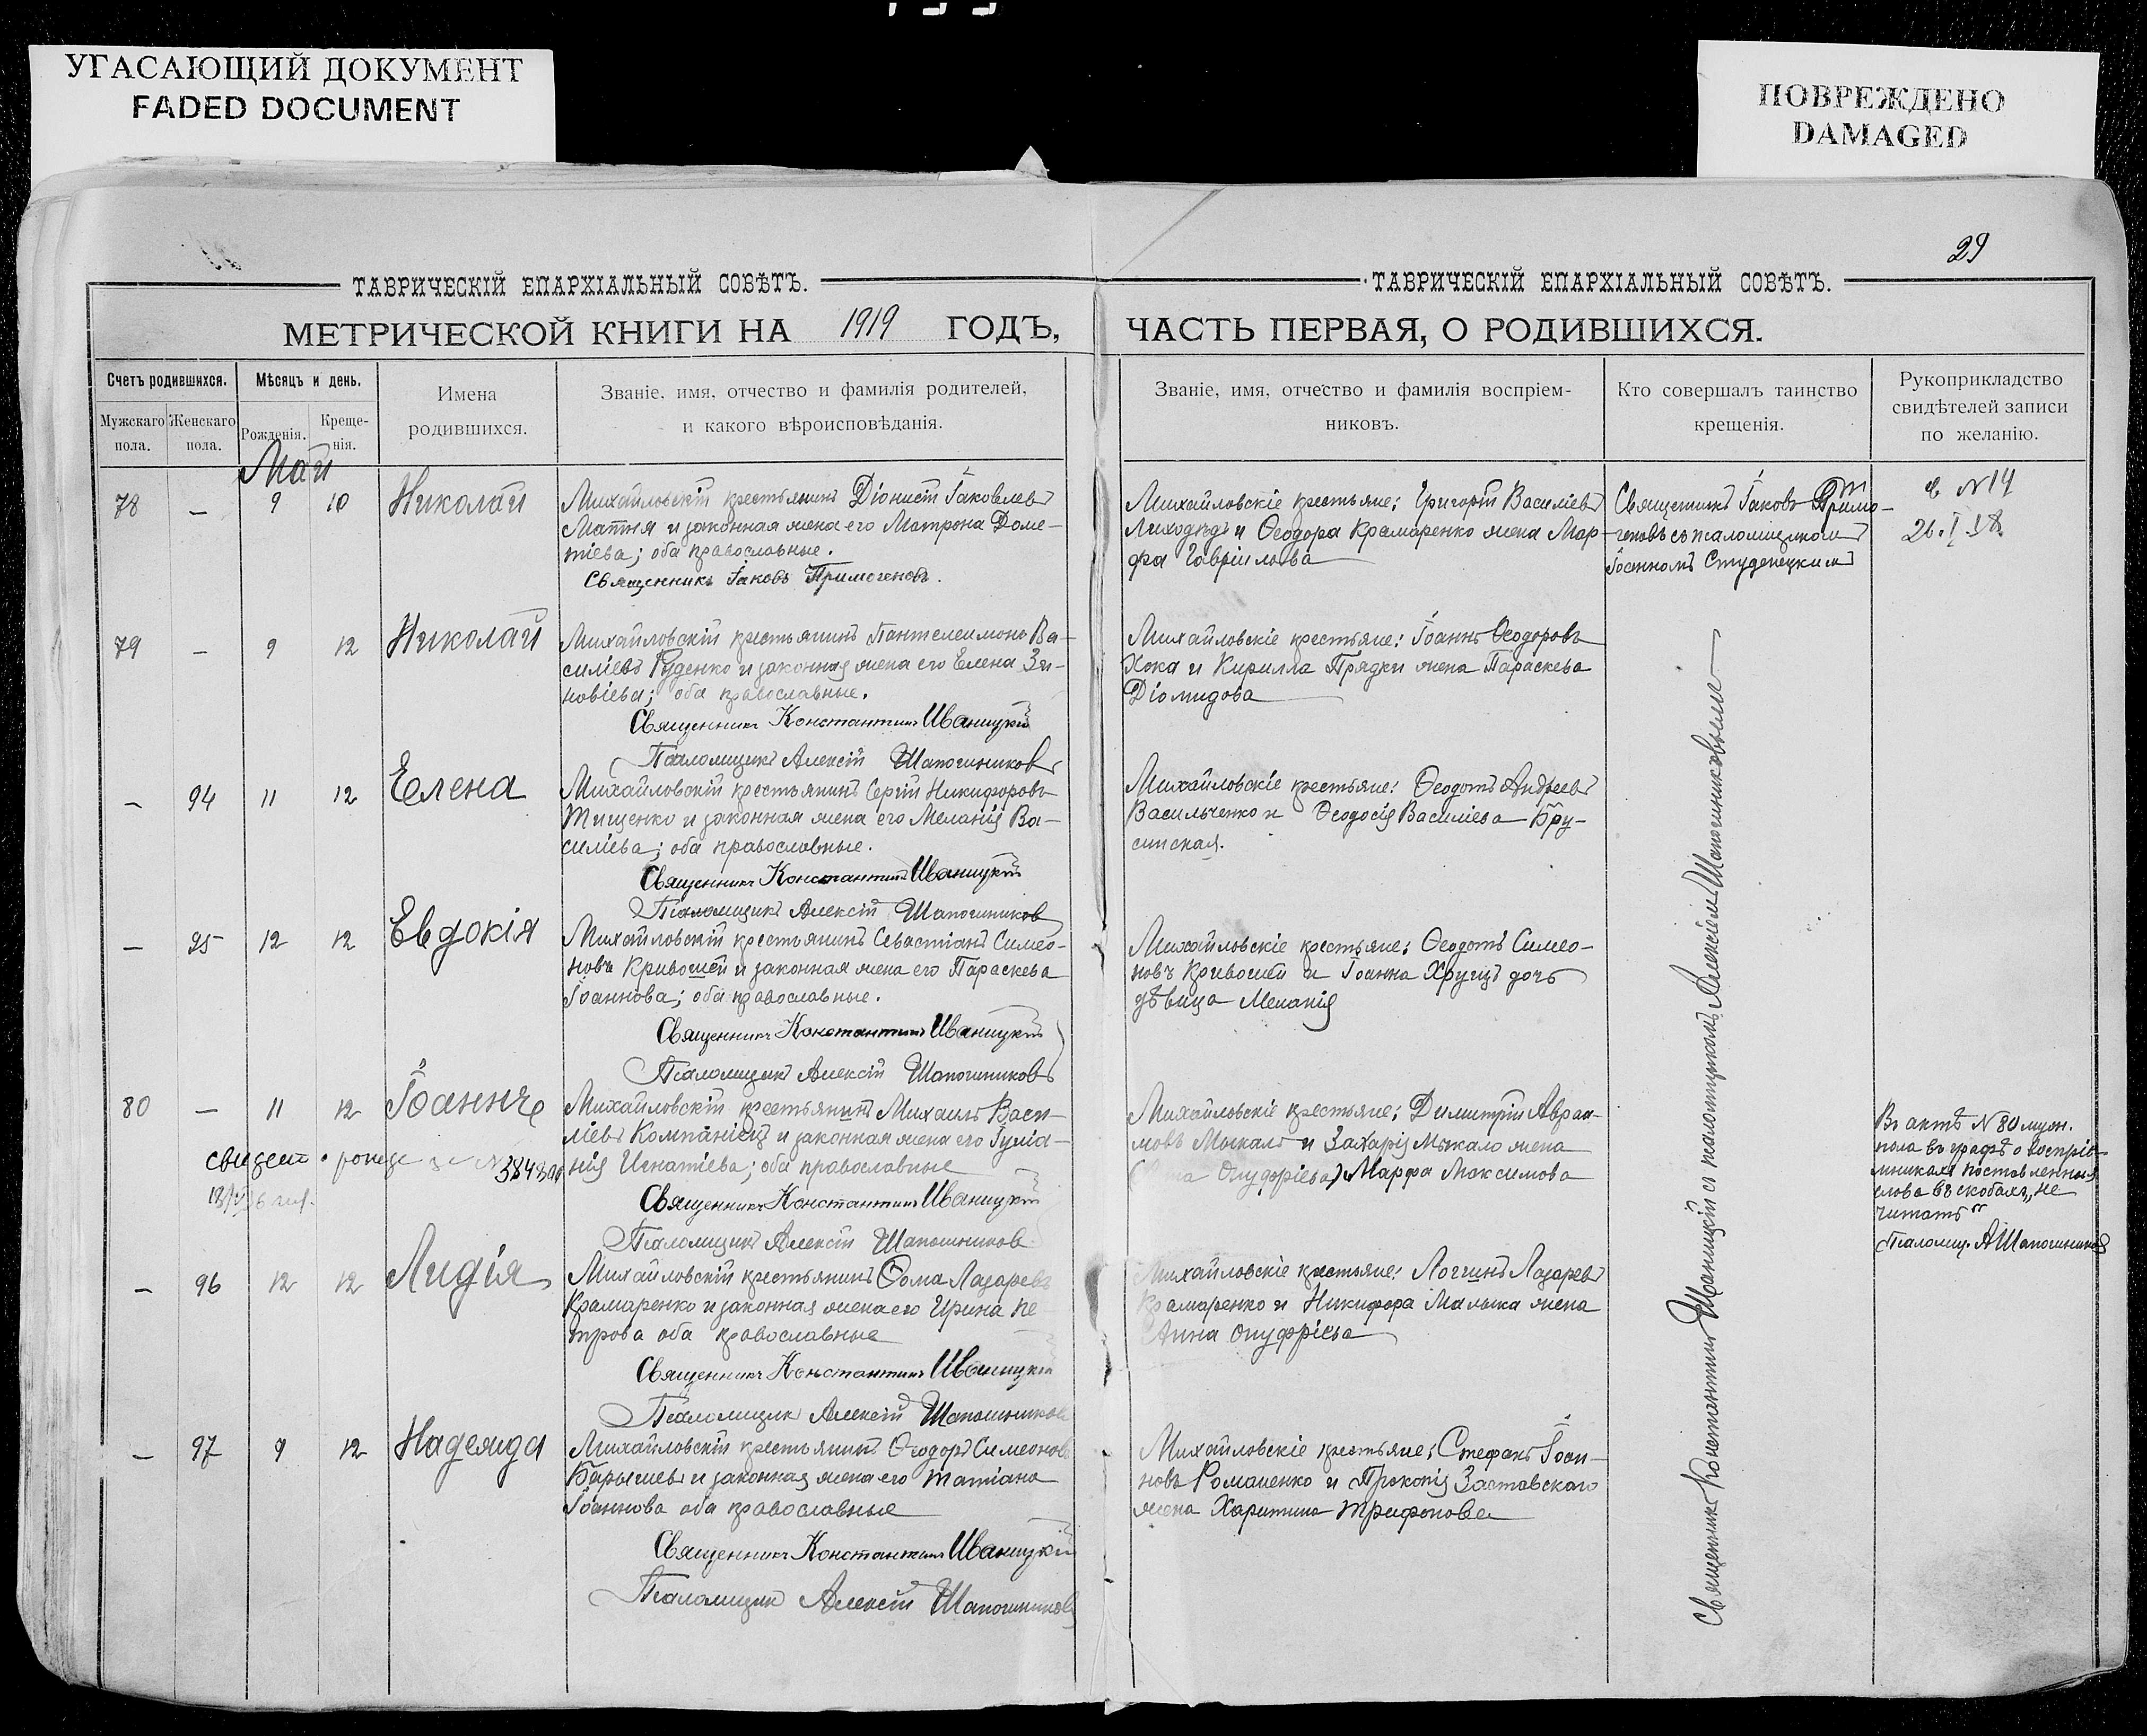 УГАСАЮЩИЙ ДОКУМЕНТ
FADED DOCUMENT
ПОВРЕЖДЕНО
DAMAGED
29
ТАВРИЧЕСКІЙ ЕПАРХІАЛЬНЫЙ СОВѢТЪ.
МЕТРИЧЕСКОЙ КНИГИ НА 1919 ГОДЪ,
Счетъ родившихся.
Мужскаго пола.
Женскаго пола.
Мѣсяцъ и день.
Рожденія.
Креще-
нія.
Имена
родившихся.
Званіе, имя, отчество и фамилія родителей,
и какого вѣроисповѣданія.
ТАВРИЧЕСКІЙ ЕПАРХІАЛЬНЫЙ СОВѢТЪ.
ЧАСТЬ ПЕРВАЯ, О РОДИВШИХСЯ.
Званіе, имя, отчество и фамилія воспріем-
никовъ.
Кто совершалъ таинство
крещенія.
Рукоприкладство
свидѣтелей записи
по желанію.
Май
78 — 9 10 Николай
Михайловскій крестьянинъ Діонисій Іаковлевъ
Матня и законная жена его Матрона Доме-
тіева; оба православные.
Священникъ Іаковъ Примогеновъ.
Михайловскіе крестьяне: Григорій Василіевъ
Лиходѣдъ и Ѳеодора Крамаренко жена Мар-
фа Гавріилова
Священникъ Іаковъ Примо-
геновъ съ псаломщикомъ
Іоанномъ Студенецкимъ
№14
79 — 9 12 Николай
Михайловскій крестьянинъ Пантелеимонъ Ва-
силіевъ Руденко и законная жена его Елена Зи-
новіева; оба православные.
Священникъ Константинъ Иваницкій
Псаломщикъ Алексій Шапошниковъ
Михайловскіе крестьяне: Іоаннъ Ѳеодоровъ
Хока и Кирилла Прядки жена Параскева
Діомидова
— 94 11 12 Елена
Михайловскій крестьянинъ Сергій Никифоровъ
Тищенко и законная жена его Меланія Ва-
силіева; оба православные.
Священникъ Константинъ Иваницкій
Псаломщикъ Алексій Шапошниковъ
Михайловскіе крестьяне: Ѳеодотъ Андреевъ
Васильченко и Ѳеодосія Василіева Бру-
синская.
— 95 12 12 Евдокія
Михайловскій крестьянинъ Севастіанъ Симео-
новъ Кривошей и законная жена его Параскева
Іоаннова; оба православные.
Священникъ Константинъ Иваницкій
Псаломщикъ Алексій Шапошниковъ
Михайловскіе крестьяне: Ѳеодотъ Симео-
новъ Кривошей и Іоанна Хруцъ дочь
дѣвица Меланія
80 — 11 12 Іоаннъ
Михайловскій крестьянинъ Михаилъ Васи-
ліевъ Компаніецъ и законная жена его Іуліа-
нія Игнатіева; оба православные
Священникъ Константинъ Иваницкій
Псаломщикъ Алексій Шапошниковъ
Михайловскіе крестьяне: Димитрій Авраа-
мовъ Москалъ и Захарія жена
Онуфріева) Марфа Максимова
Въ актѣ №80 муж.
пола въ графѣ о воспріе-
мникахъ поставленныя
слова въ скобахъ „не
читать“
Псаломщ. АШапошниковъ
— 96 12 12 Лидія
Михайловскій крестьянинъ Ѳома Лазаревъ
Крамаренко и законная жена его Ирина Пе-
трова оба православные
Священникъ Константинъ Иваницкій
Псаломщикъ Алексій Шапошниковъ
Михайловскіе крестьяне: Логгинъ Лазаревъ
Крамаренко и Никифора Малыка жена
Анна Онуфріева
— 97 9 12 Надежда
Михайловскій крестьянинъ Ѳеодоръ Симеоновъ
Барышевъ и законная жена его Татіана
Іоаннова оба православные
Священникъ Константинъ Иваницкій
Псаломщикъ Алексій Шапошниковъ
Михайловскіе крестьяне: Стефанъ Іоан-
новъ Романенко и Прокопія Заставскаго
жена Харитина Трифонова
Священникъ Константинъ Иваницкій съ псаломщикомъ Алексіемъ Шапошниковымъ